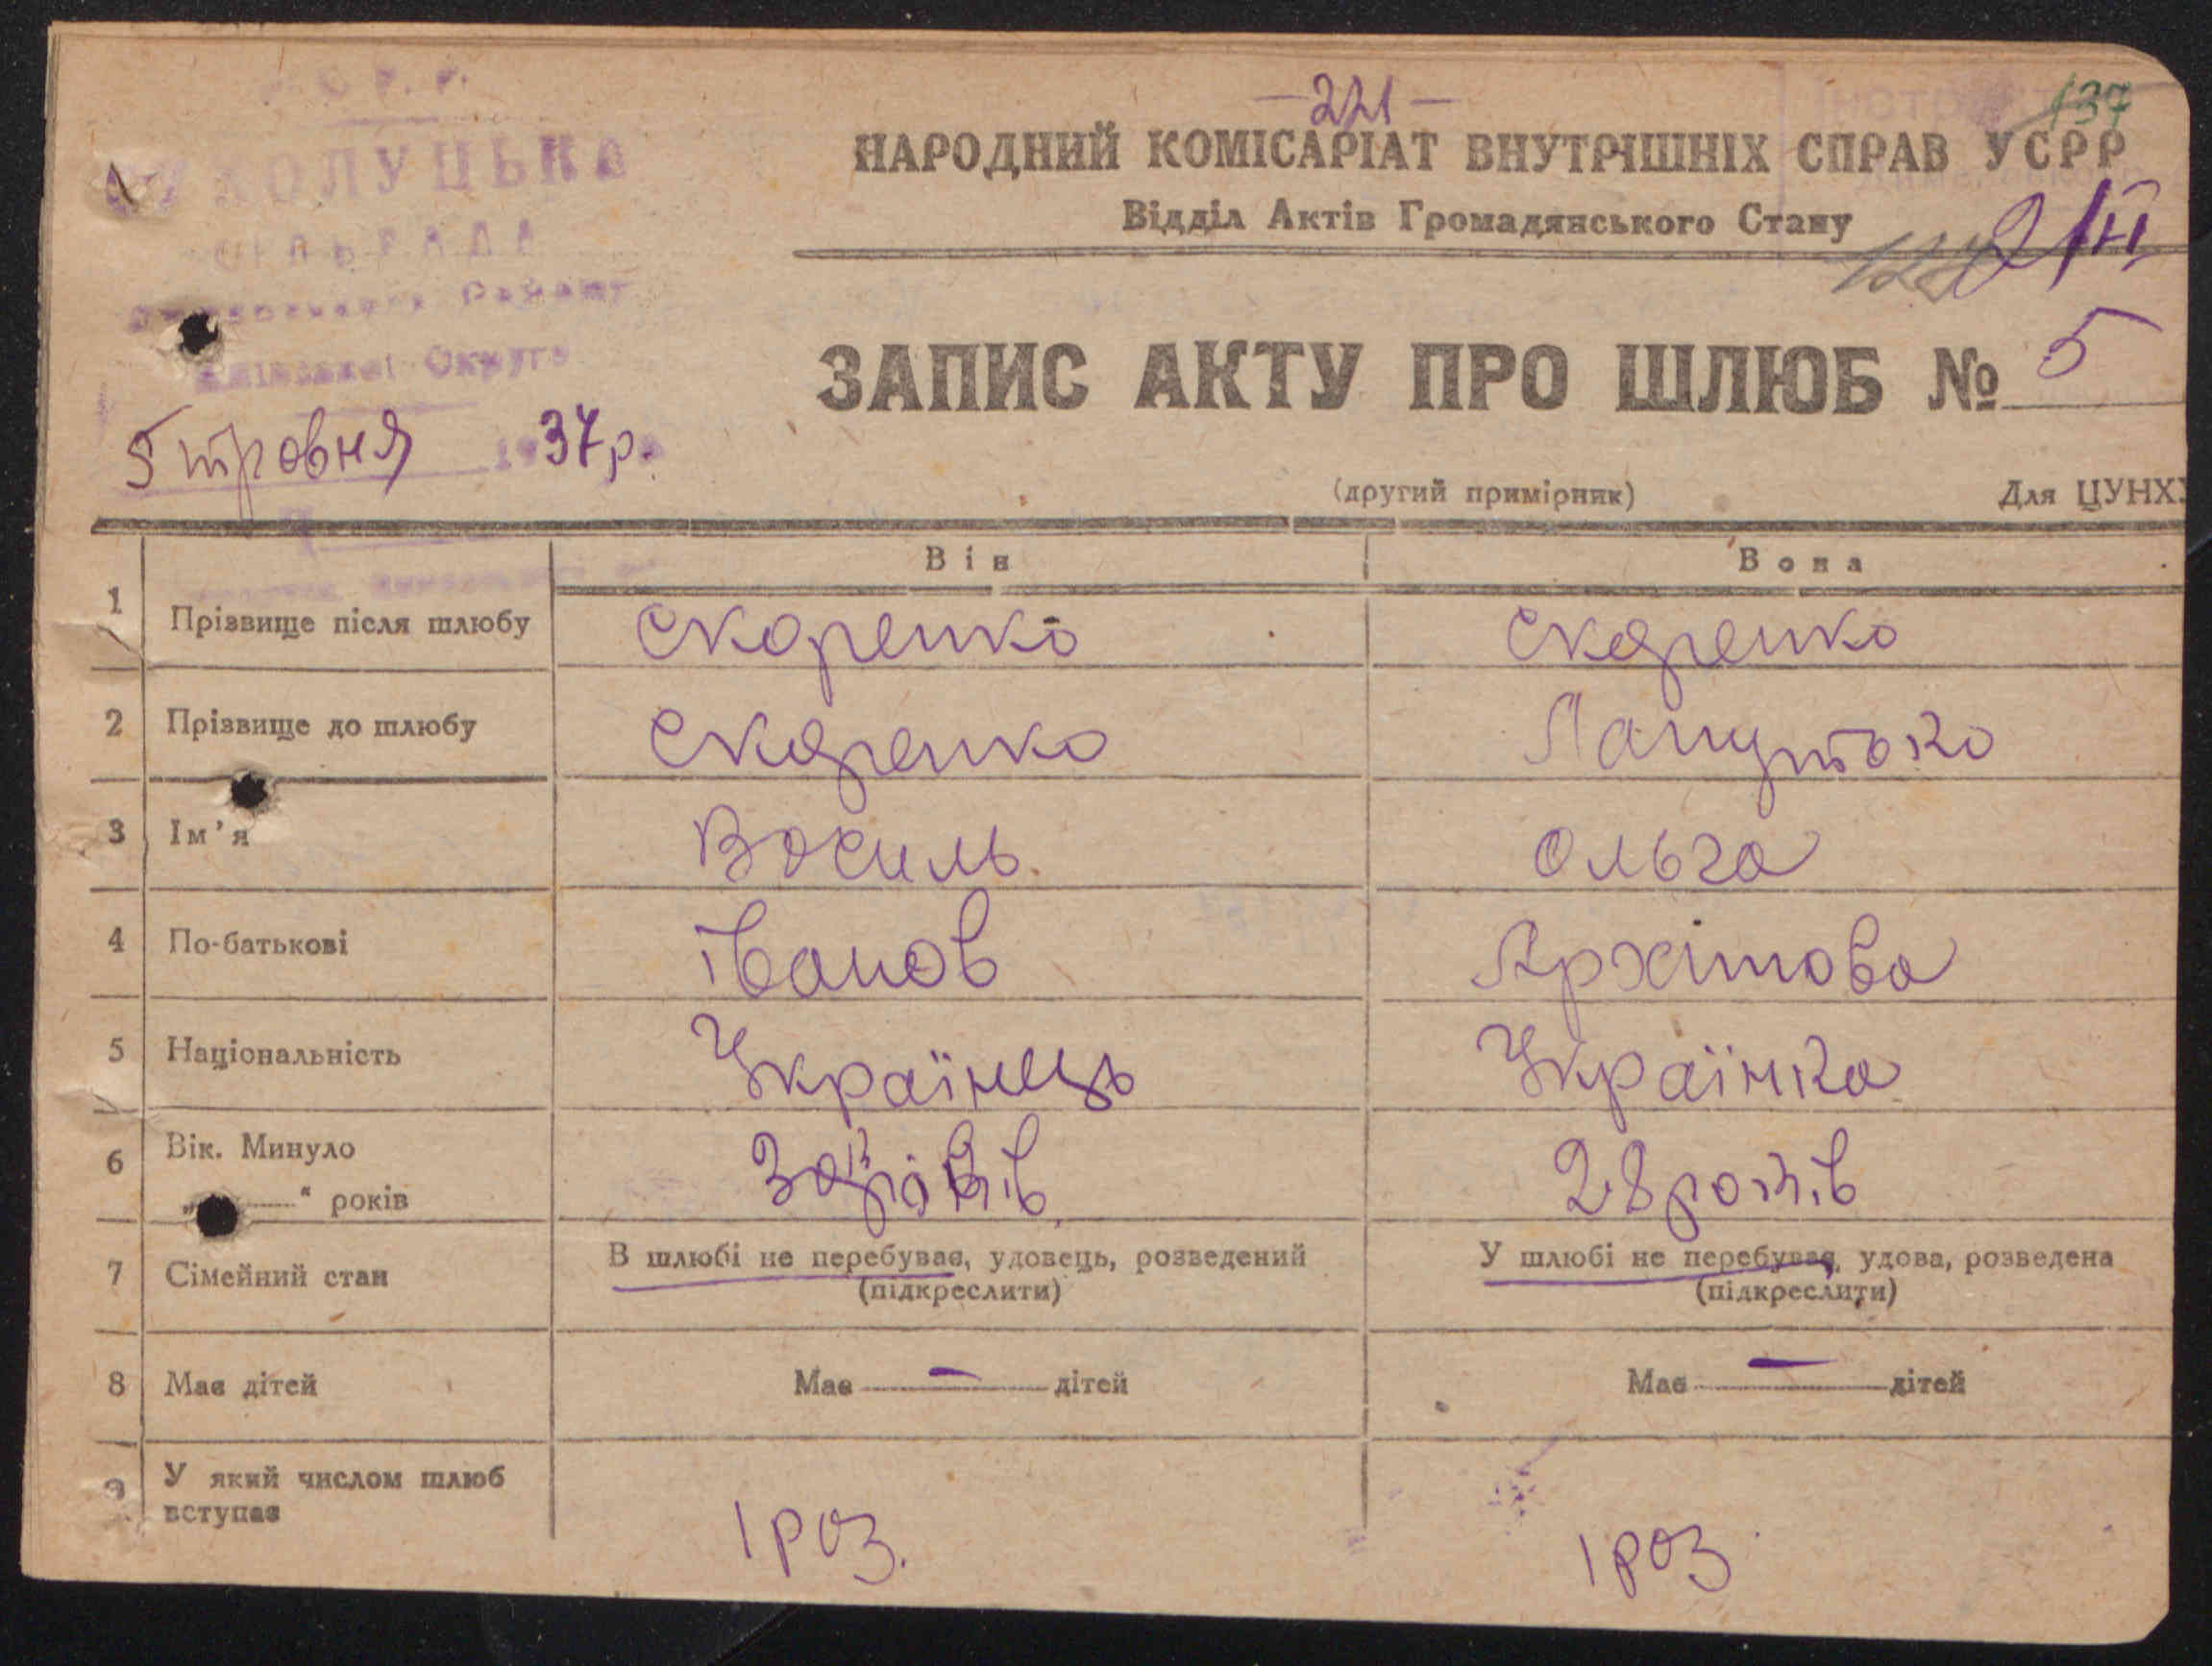 -221-
137
НАРОДНИЙ КОМІСАРІАТ ВНУТРІШНІХ СПРАВ УСРР
Відділ Актів Громадянського Стану
ЗАПИС АКТУ ПРО ШЛЮБ № 5
5 тровня 1937р.
(другий примірник) Для ЦУНХУ
Він Вона
1 Прізвище після шлюбу Скоренко Скоренко
2 Прізвище до шлюбу Скоренко
3 Ім'я Василь Ольга
4 По-батькові Іванов Архипова
5 Національність Українець Українка
6 Вік. Минуло
„ — “ років 28 років
7 Сімейний стан В шлюбі не перебував, удовець, розведений У шлюбі не перебувая, удова, розведена
(підкреслити) (підкреслити)
8 Має дітей Має — дітей Має — дітей
9 У який числом шлюб
вступає 1 роз. 1 роз